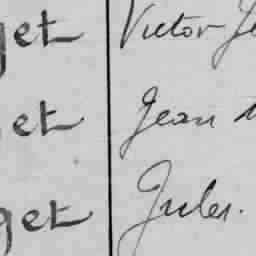 get Victor Je
get Jean
get Jules.